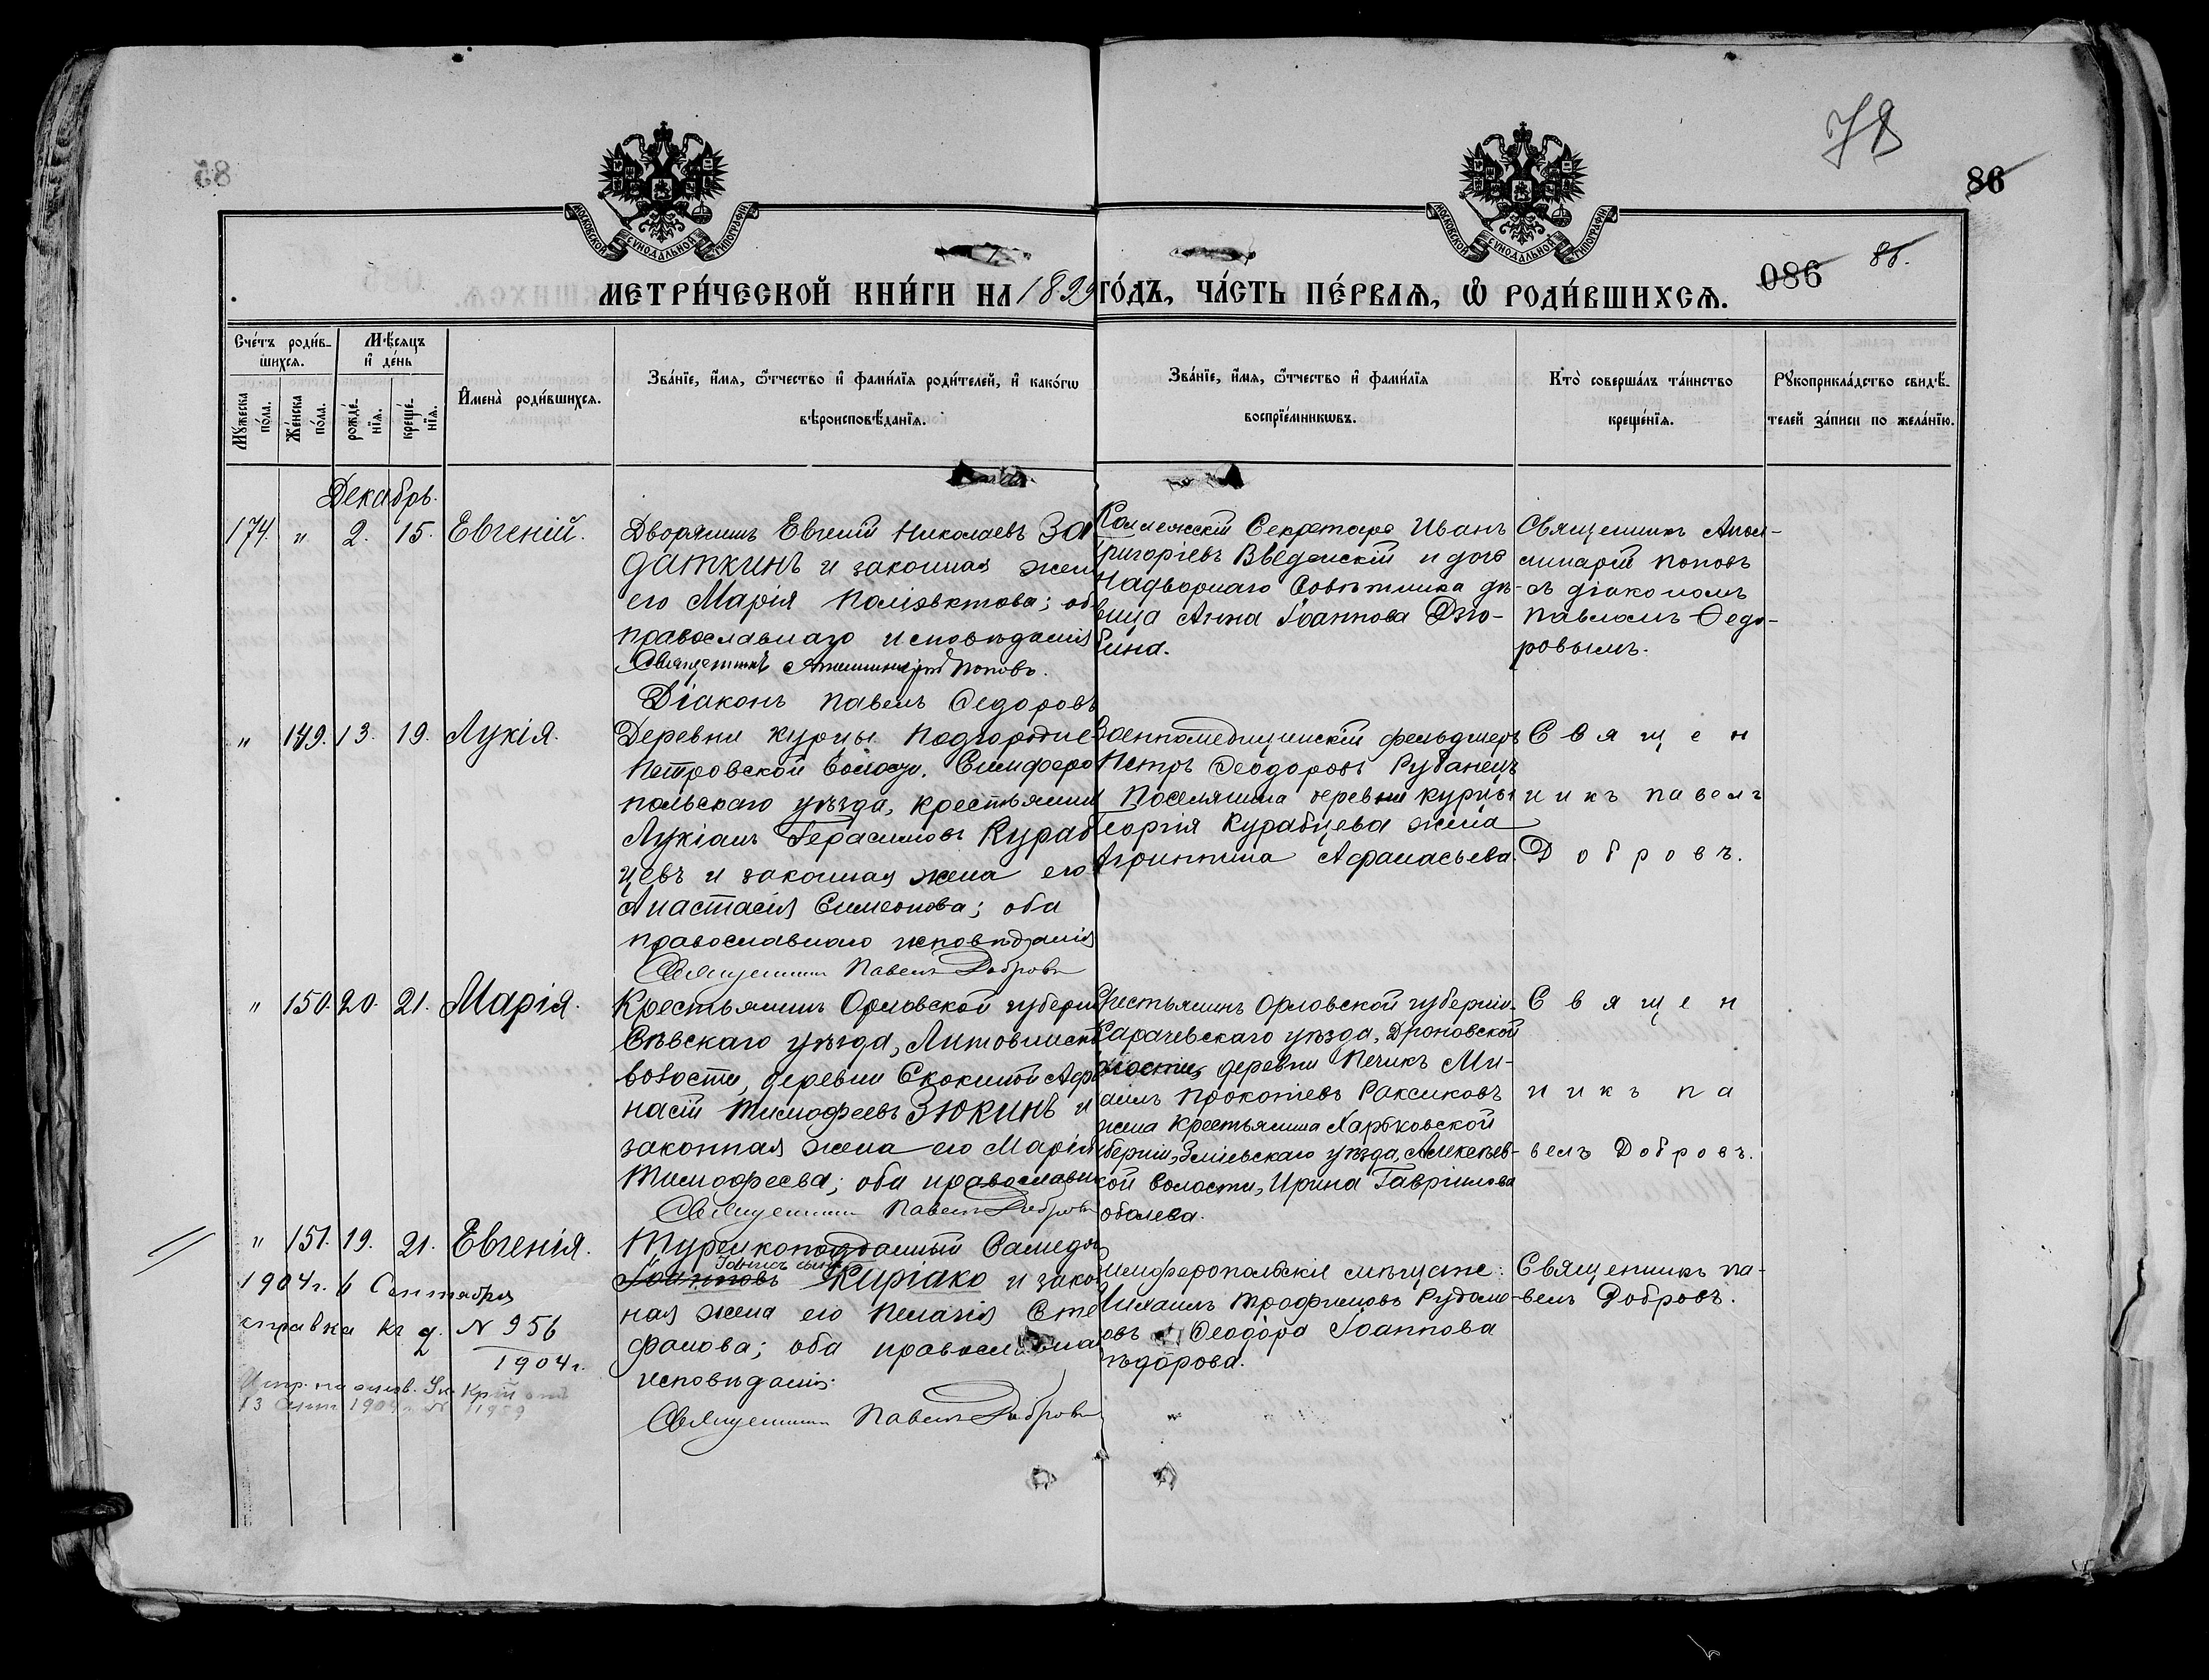 78
86
85
МОСКОВСКОЙ СѴНОДАЛЬНОЙ ТИПОГРАФІИ
МОСКОВСКОЙ СѴНОДАЛЬНОЙ ТИПОГРАФІИ
086 86.
МЕТРИ́ЧЕСКОЙ КНИ́ГИ НА 1899 ГО́ДЪ, ЧА́СТЬ ПЕ́РВАЯ, Ѡ РОДИ́ВШИХСЯ.
Сче́тъ роди́в-
шихся.
Мꙋжеска по́ла.
Же́нска по́ла.
Мѣ́сяцъ и де́нь
рожде́-
нїя.
креще́-
нїя.
Имена̀ роди́вшихся.
Зва́нїе, и́мя, ѻ҆́тчество и фами́лїя роди́телей, и како́гѡ
вѣроисповѣ́данїя.
Зва́нїе, и́мя, ѻ҆́тчество и фами́лїя
воспрїе́мникѡвъ.
Кто̀ соверша́лъ та́инство
креще́нїя.
Рꙋкоприкла́дство свидѣ́-
телей за́писи по жела́нїю.
Декабрь.
174. " 2. 15. Евгеній.
Дворянинъ Евгеній Николаевъ За
даткинъ и законная жен
его Марія Поліевктова; об
православнаго исповѣданія
Священникъ Поповъ.
Діаконъ Павелъ Федоровъ
Коллежскій Секретарь Иванъ
Григоріевъ Введенскій и дочь
Надворнаго Совѣтника дѣ-
вица Анна Іоаннова Дзю-
бина.
Священникъ Апол-
линарій Поповъ
съ діакономъ
Павломъ Федо-
ровымъ.
" 149. 13. 19. Лукія.
Деревни Курцы Подгородне-
Петровской волости, Симферо
польскаго уѣзда, крестьянин
Лукіанъ Герасимовъ Кураб
цевъ и законная жена его
Анастасія Симеонова; оба
православнаго исповѣданія
Священникъ Павелъ Добровъ
Военномедицинскій фельдшеръ
Петръ Ѳеодоровъ Рубанецъ
Поселянина деревни Курцы
Георгія Курабцева жена
Агриппина Афанасьева.
Священ
никъ Павелъ
Добровъ.
" 150. 20. 21. Марія.
Крестьянинъ Орловской губерн
Сѣвскаго уѣзда, Литовнинск
волости, деревни Скокиной Афа
насій Тимофеевъ Зюкинъ и
законная жена его Марія
Тимофеева; оба православн
Священникъ Павелъ Добровъ
рестьянинъ Орловской губерніи
Карачевскаго уѣзда, Дроновской
волости, деревни Печикъ Ми-
аилъ Прокопіевъ Раксиковъ
жена Крестьянина Харьковской
уберніи, Зміевскаго уѣзда, Алексѣев-
кой волости, Ирина Гавріилова
обалева.
Священ
никъ Па
велъ Добровъ.
" 151. 19. 21. Евгенія.
1904 г. 6 Сентября
справка къ д. N 956
1904 г.
Турецкоподданный
Іоанновъ Киріако и закон
ная жена его Пелагія Сте
фанова; оба православна
исповѣданія.
Священникъ Павелъ Добровъ
имферопольскіе мѣщане:
Михаилъ Трофимовъ Рудомо-
овъ Ѳеодора Іоаннова
ѣдорова.
Священникъ Па-
велъ Добровъ.